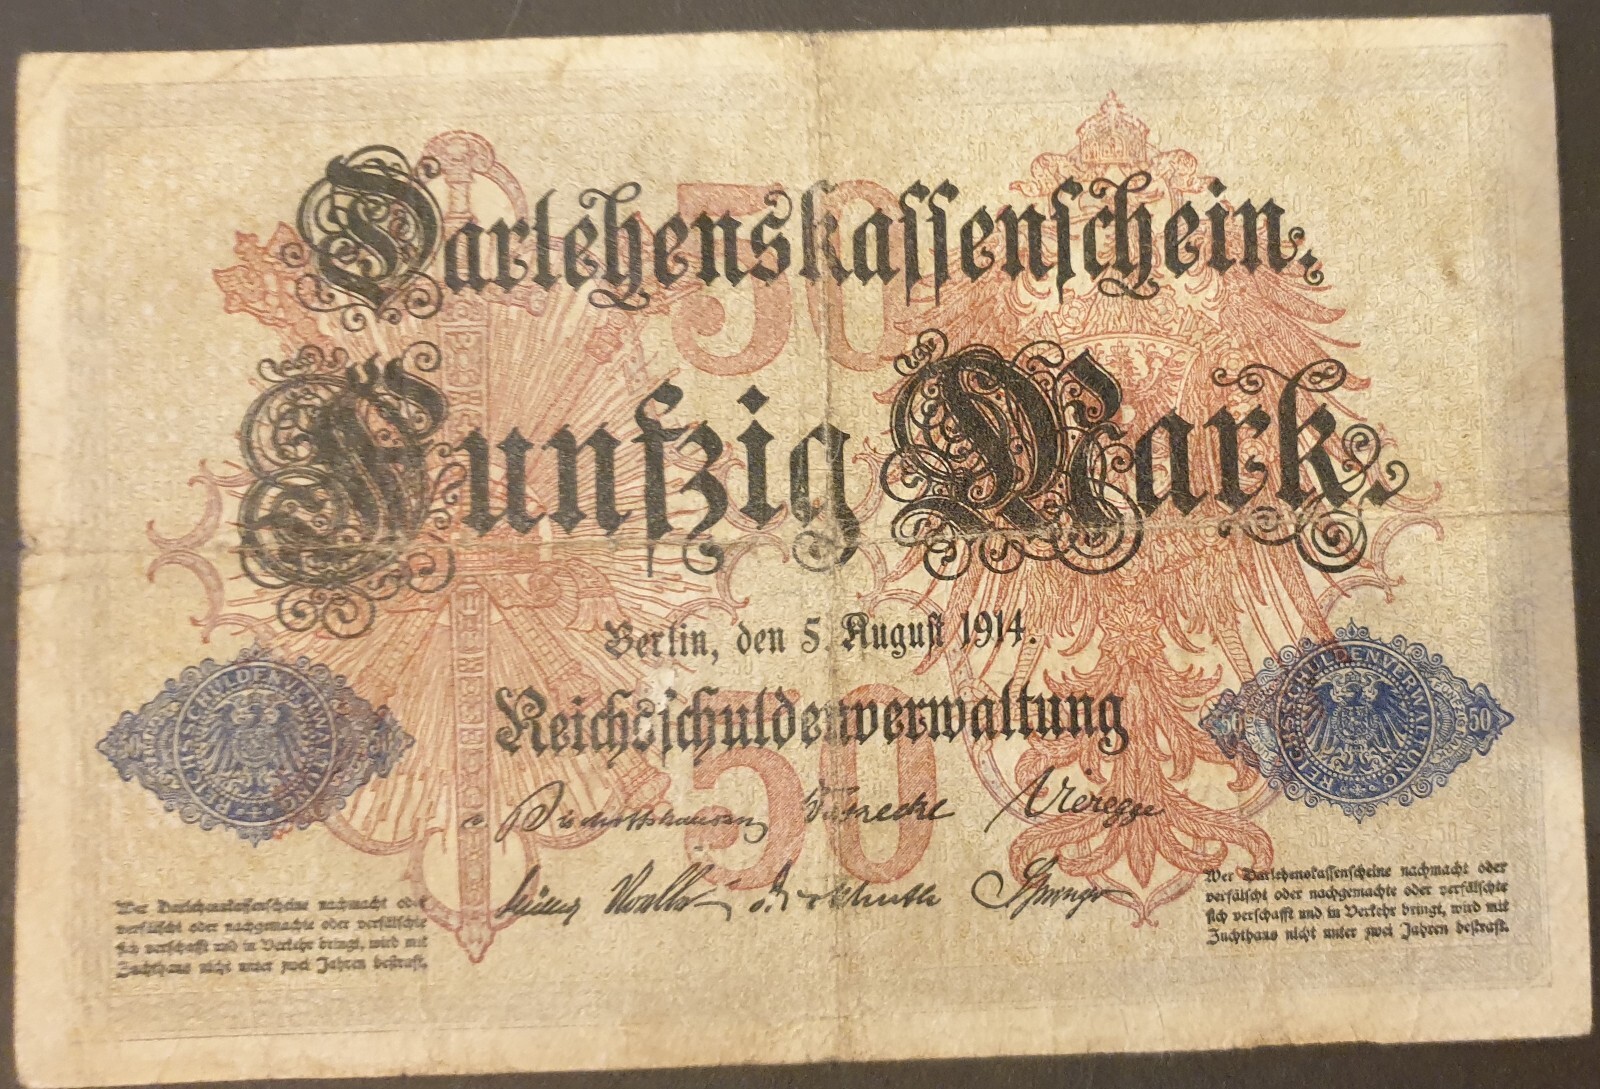 50
Darlehenskassenschein.
Fünfzig Mark.
Berlin, den 5. August 1914.
Reichsschuldenverwaltung
50
REICHSSCHULDENVERWALTUNG
50
REICHSSCHULDENVERWALTUNG
50
50
Bischoffshausen Warnecke Vieregge
Müller Noelle Springer
Wer Darlehenskassenscheine nachmacht oder
verfälscht oder nachgemachte oder verfälschte
sich verschafft und in Verkehr bringt, wird mit
Zuchthaus nicht unter zwei Jahren bestraft.
Wer Darlehenskassenscheine nachmacht oder
verfälscht oder nachgemachte oder verfälschte
sich verschafft und in Verkehr bringt, wird mit
Zuchthaus nicht unter zwei Jahren bestraft.